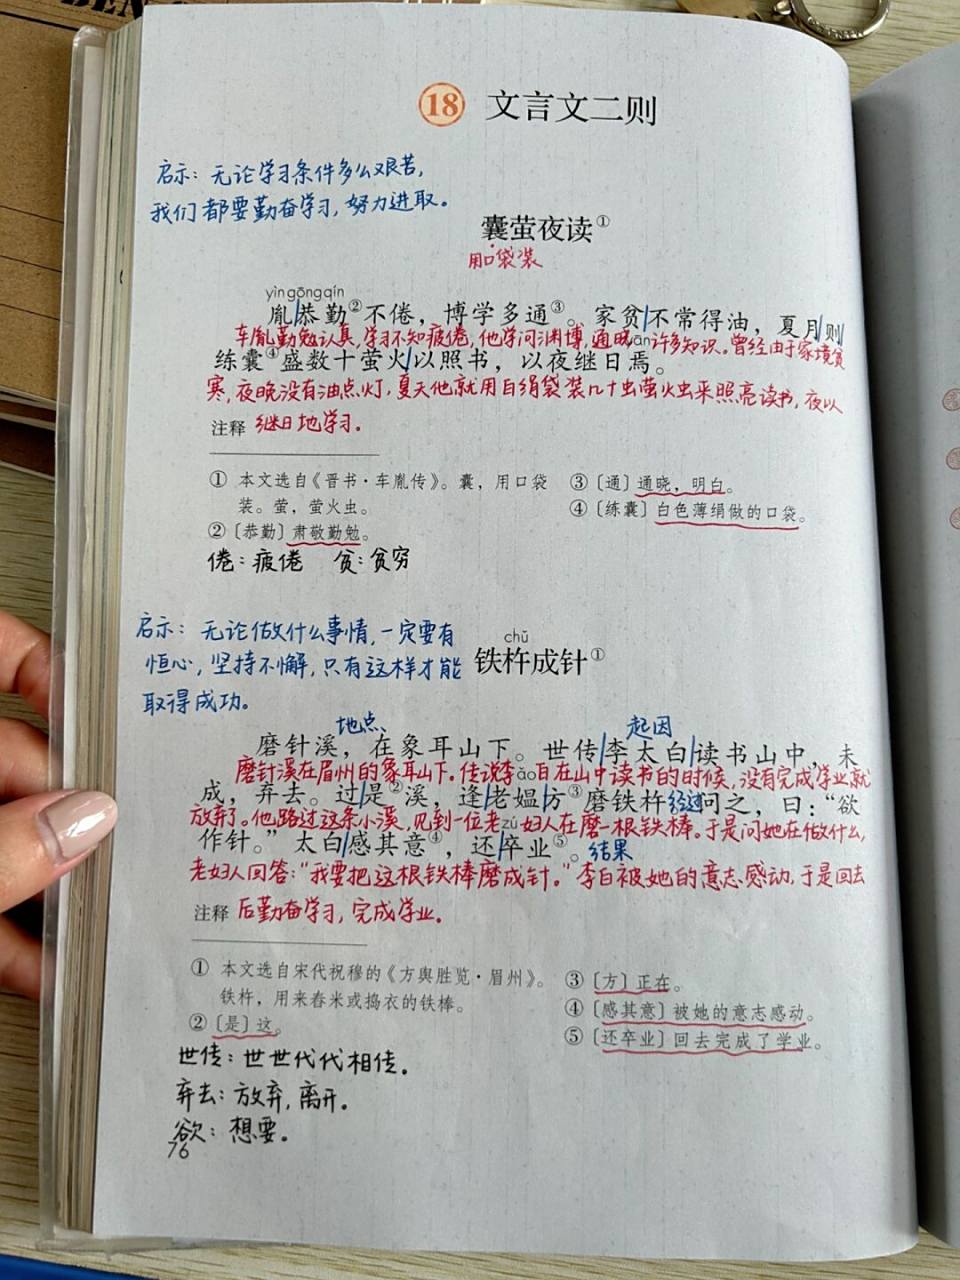 18 文言文二则
启示：无论学习条件多么艰苦，
我们都要勤奋学习，努力进取。
囊萤夜读①
用口袋装
yìn gōng qín
胤恭勤②不倦，博学多通③。家贫不常得油，夏月则
车胤勤勉认真，学习不知疲倦，他学问渊博，通晓许多知识。曾经由于家境贫
练囊④盛数十萤火以照书，以夜继日焉。
寒，夜晚没有油点灯，夏天他就用白绢袋装几十虫萤火虫来照亮读书，夜以
注释 继日地学习。
① 本文选自《晋书·车胤传》。囊，用口袋
装。萤，萤火虫。
② 〔恭勤〕肃敬勤勉。
③ 〔通〕通晓，明白。
④ 〔练囊〕白色薄绢做的口袋。
倦：疲倦 贫：贫穷
启示：无论做什么事情，一定要有
恒心，坚持不懈，只有这样才能
取得成功。
chǔ
铁杵成针①
地点 起因
磨针溪，在象耳山下。世传李太白读书山中，未
磨针溪在眉州的象耳山下。传说李白在山中读书的时候，没有完成学业就
成，弃去。过是②溪，逢老媪方③磨铁杵 经过 问之，曰：“欲
放弃了。他路过这条小溪，见到一位老妇人在磨一根铁棒。于是问她在做什么，
作针。”太白感其意④，还卒业⑤。结果
老妇人回答：“我要把这根铁棒磨成针。”李白被她的意志感动，于是回去
注释 后勤奋学习，完成学业。
① 本文选自宋代祝穆的《方舆胜览·眉州》。
铁杵，用来舂米或捣衣的铁棒。
② 〔是〕这。
③ 〔方〕正在。
④ 〔感其意〕被她的意志感动。
⑤ 〔还卒业〕回去完成了学业。
世传：世世代代相传。
弃去：放弃，离开。
欲：想要。
76